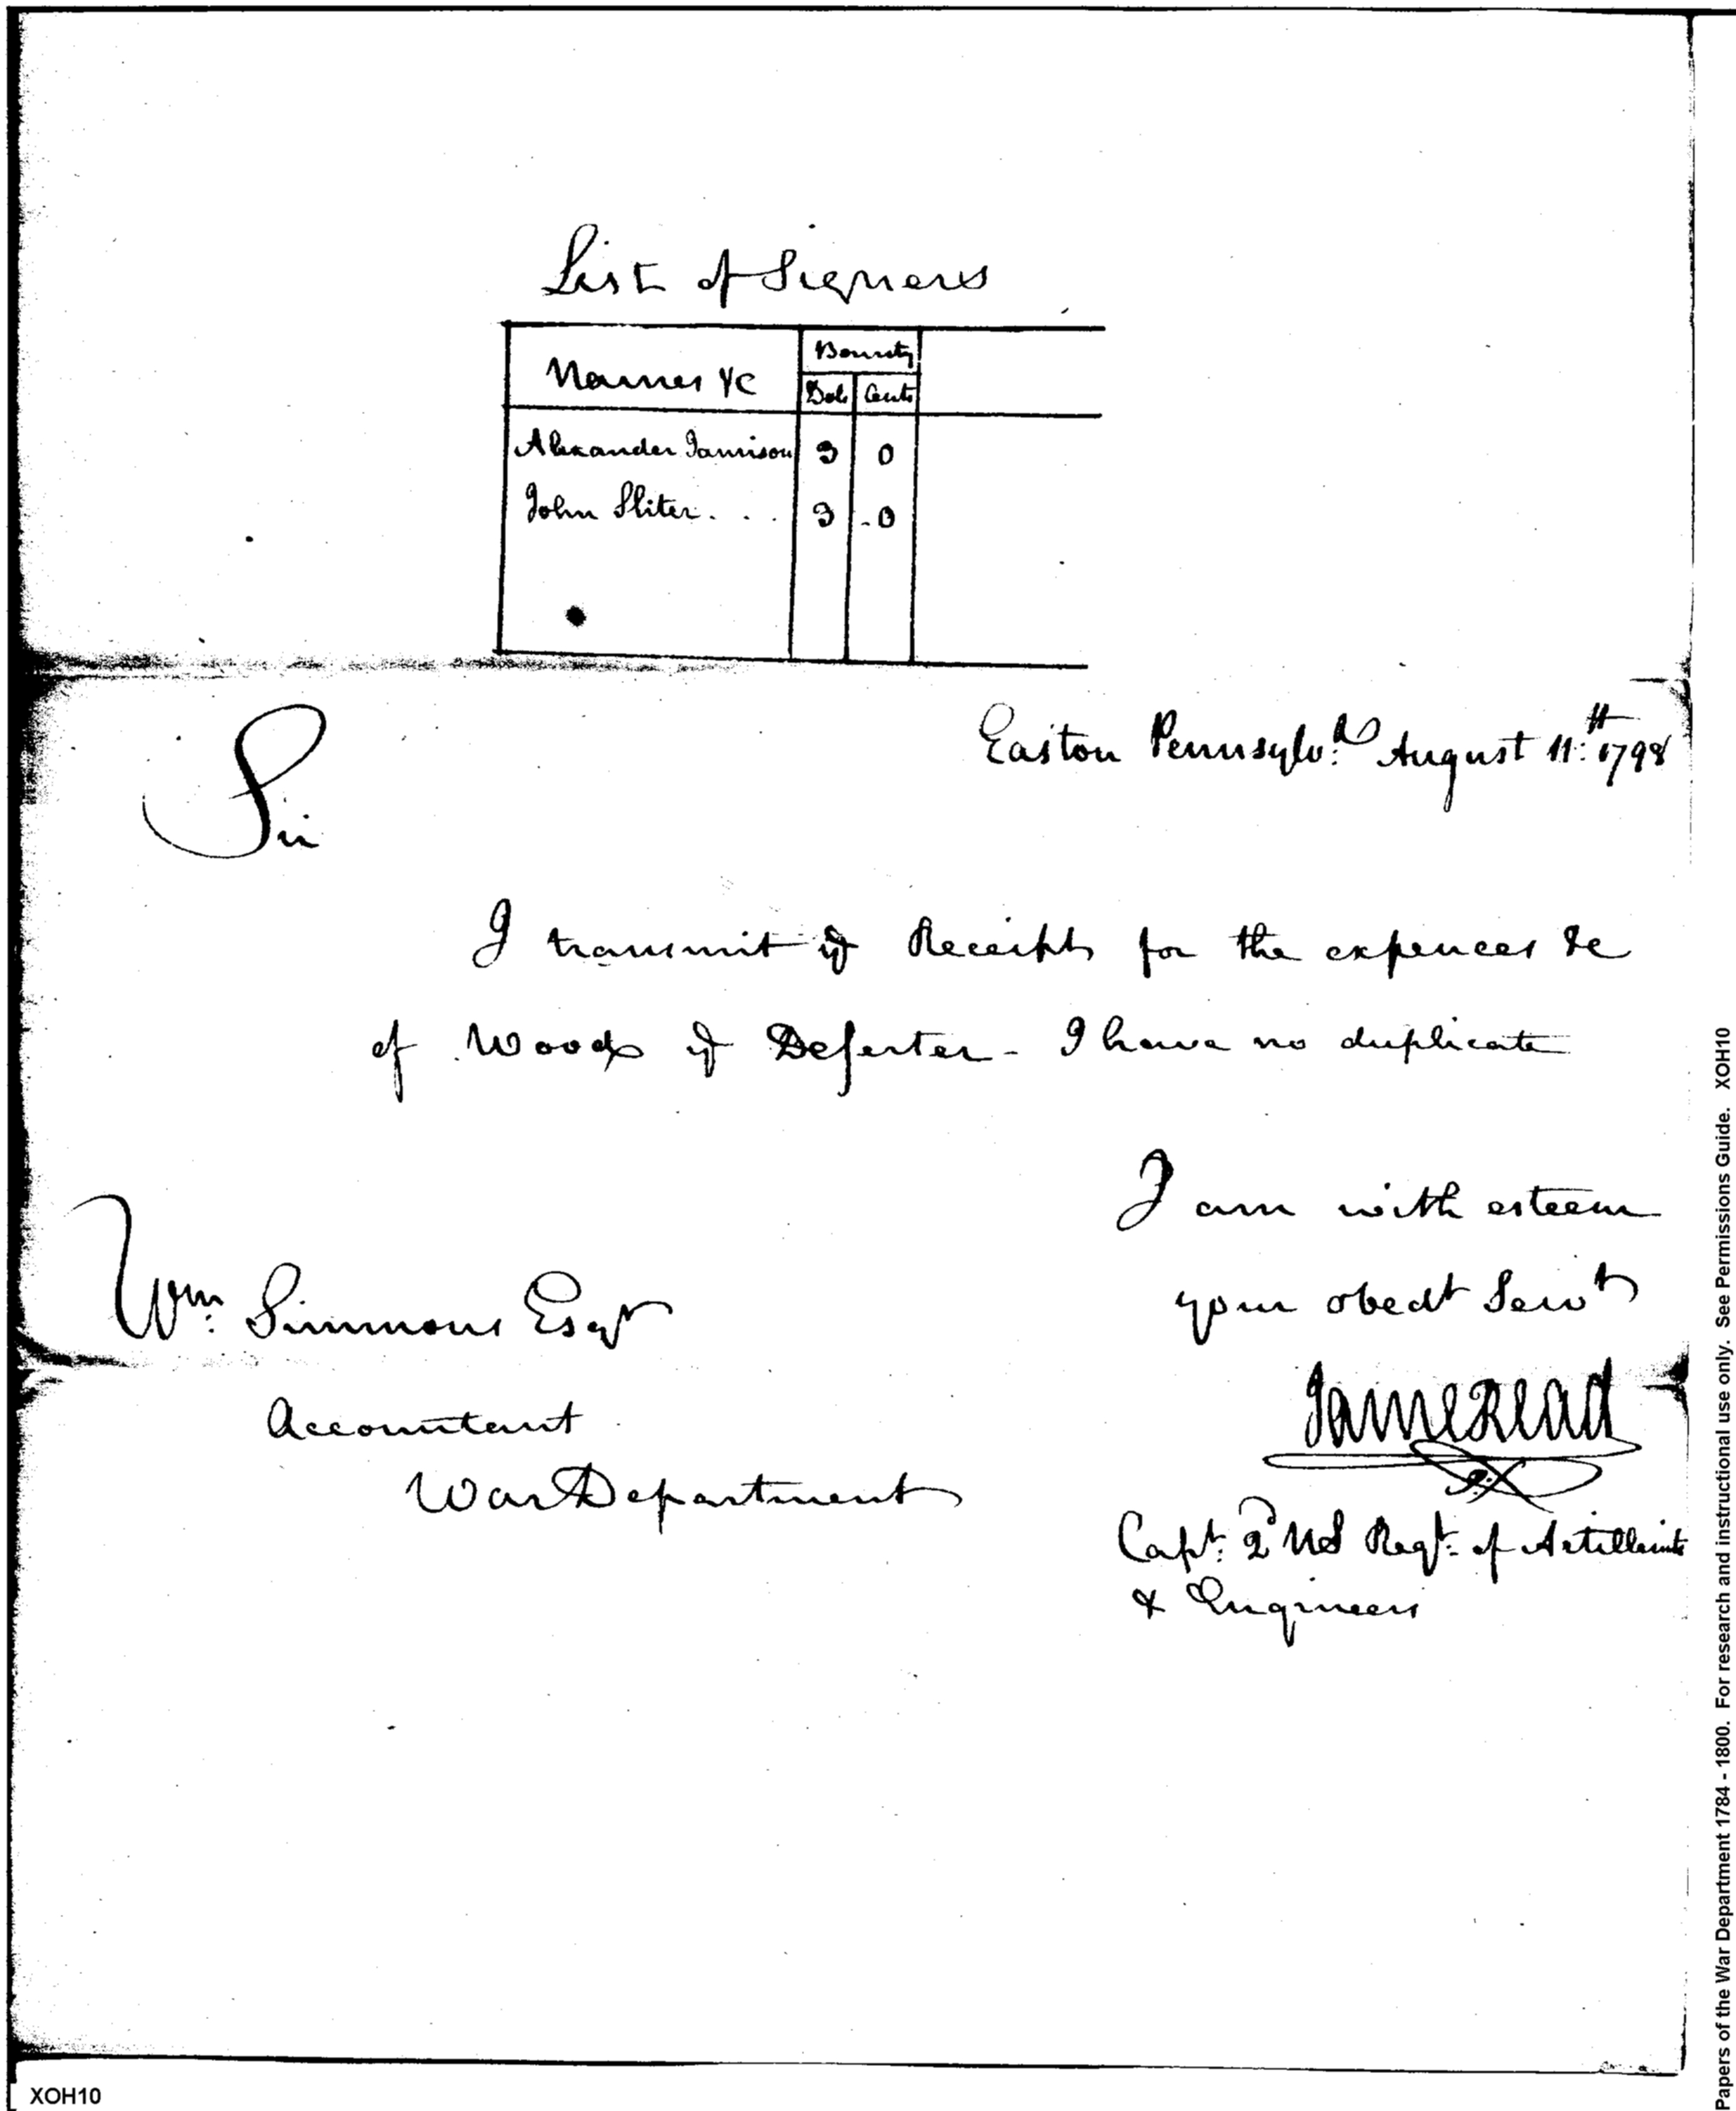 List of Signers
Names &c
Bounty
Dols Cents
Alexander Jamison 3 0
John Sliter . . . 3 0
Easton Pennsylvᵃ August 11th 1798
Sir
I transmit yᵉ Receipts for the expences &c
of Woods yᵉ Deserter - I have no duplicate
I am with esteem
your obedt Servt
Wm: Simmons Esqr
Accountant
War Department
James Read
Capt: 2d US Regt: of Artillerists
& Engineers
XOH10
Papers of the War Department 1784 - 1800. For research and instructional use only. See Permissions Guide. XOH10